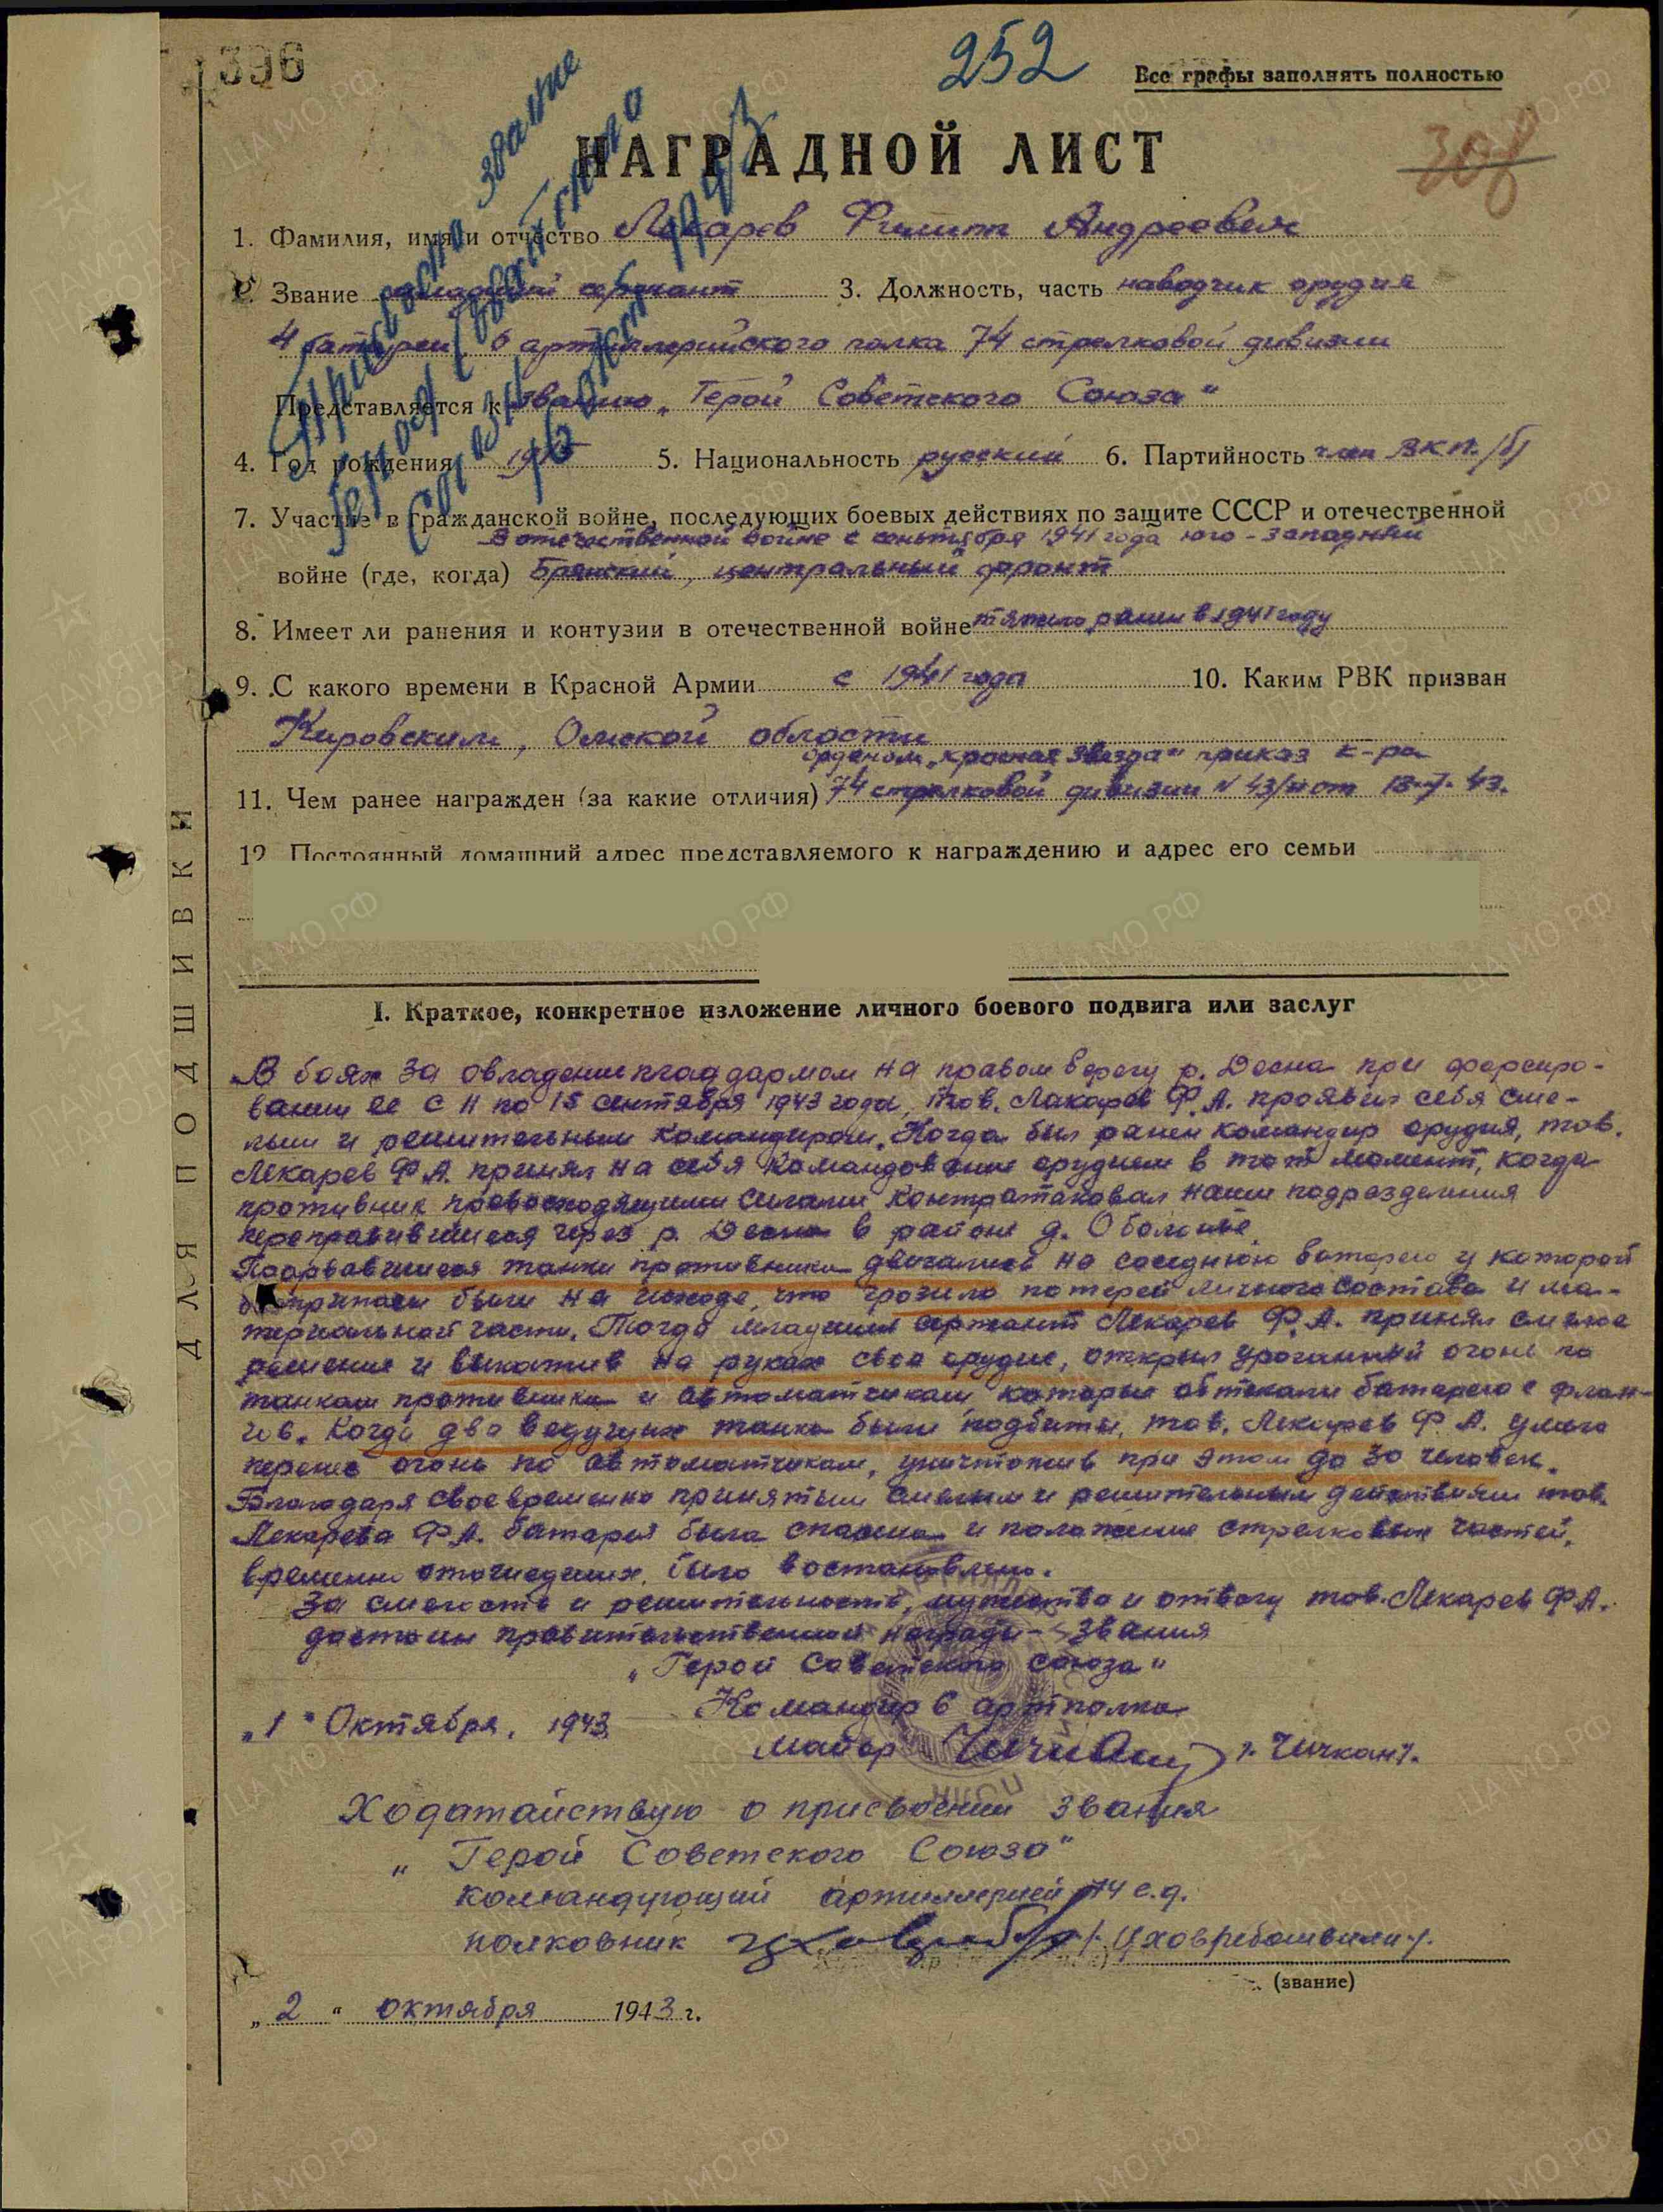 396
252
Все графы заполнять полностью
НАГРАДНОЙ ЛИСТ
Присвоено звание
Героя Советского
Союза
1943
1. Фамилия, имя и отчество Лекарев Филипп Андреевич
2. Звание младший сержант 3. Должность, часть наводчик орудия
4 батареи, 6 артиллерийского полка 74 стрелковой дивизии
Представляется к званию „Герой Советского Союза"
4. Год рождения 5. Национальность русский 6. Партийность член ВКП/б/
7. Участие в гражданской войне, последующих боевых действиях по защите СССР и отечественной
В отечественной войне с сентября 1941 года юго-западный
войне (где, когда) Брянский, центральный фронт
8. Имеет ли ранения и контузии в отечественной войне тяжело ранен в 1941 году
9. С какого времени в Красной Армии с 1941 года 10. Каким РВК призван
Кировским, Омской области
орденом „красная звезда" приказ к-ра
11. Чем ранее награжден (за какие отличия) 74 стрелковой дивизии N 43/н от 43.
12 Постоянный домашний адрес представляемого к награждению и адрес его семьи
ДЛЯ ПОДШИВКИ
I. Краткое, конкретное изложение личного боевого подвига или заслуг
В боях за овладение плацдармом на правом берегу р. Десна при форсиро-
вании ее с 11 по 15 сентября 1943 года, тов. Лекарев Ф.А. проявил себя сме-
лым и решительным командиром. Когда был ранен командир орудия, тов.
Лекарев Ф.А. принял на себя командование орудием в тот момент, когда
противник превосходящими силами контратаковал наши подразделения
переправившиеся через р. Десна в районе д. Оболонье.
Прорвавшиеся танки противника двигались на соседнюю батарею у которой
боеприпасы были на исходе, что грозило потерей личного состава и ма-
териальной части. Тогда младший сержант Лекарев Ф.А. принял смелое
решение и выкатив на руках свое орудие, открыл ураганный огонь по
танкам противника и автоматчикам, которые обтекали батарею с флан-
гов. Когда два ведущих танка были подбиты, тов. Лекарев Ф.А. умело
перенес огонь по автоматчикам, уничтожив при этом до 30 человек.
Благодаря своевременно принятым смелым и решительным действиям тов.
Лекарева Ф.А. батарея была спасена и положение стрелковых частей,
временно отошедших, было востановлено.
За смелость и решительность, мужество и отвагу тов. Лекарев Ф.А.
достоин правительственной награды - звания
„Герой Советского Союза"
Командир 6 артполка
„1" Октября, 1943 майор /Чичкан/.
Ходатайствую о присвоении звания
„Герой Советского Союза"
командующий артиллерией 74 с.д.
полковник /Цховребашвили/.
(звание)
„2" октября 1943 г.
ПАМЯТЬ НАРОДА
ЦАМО.РФ